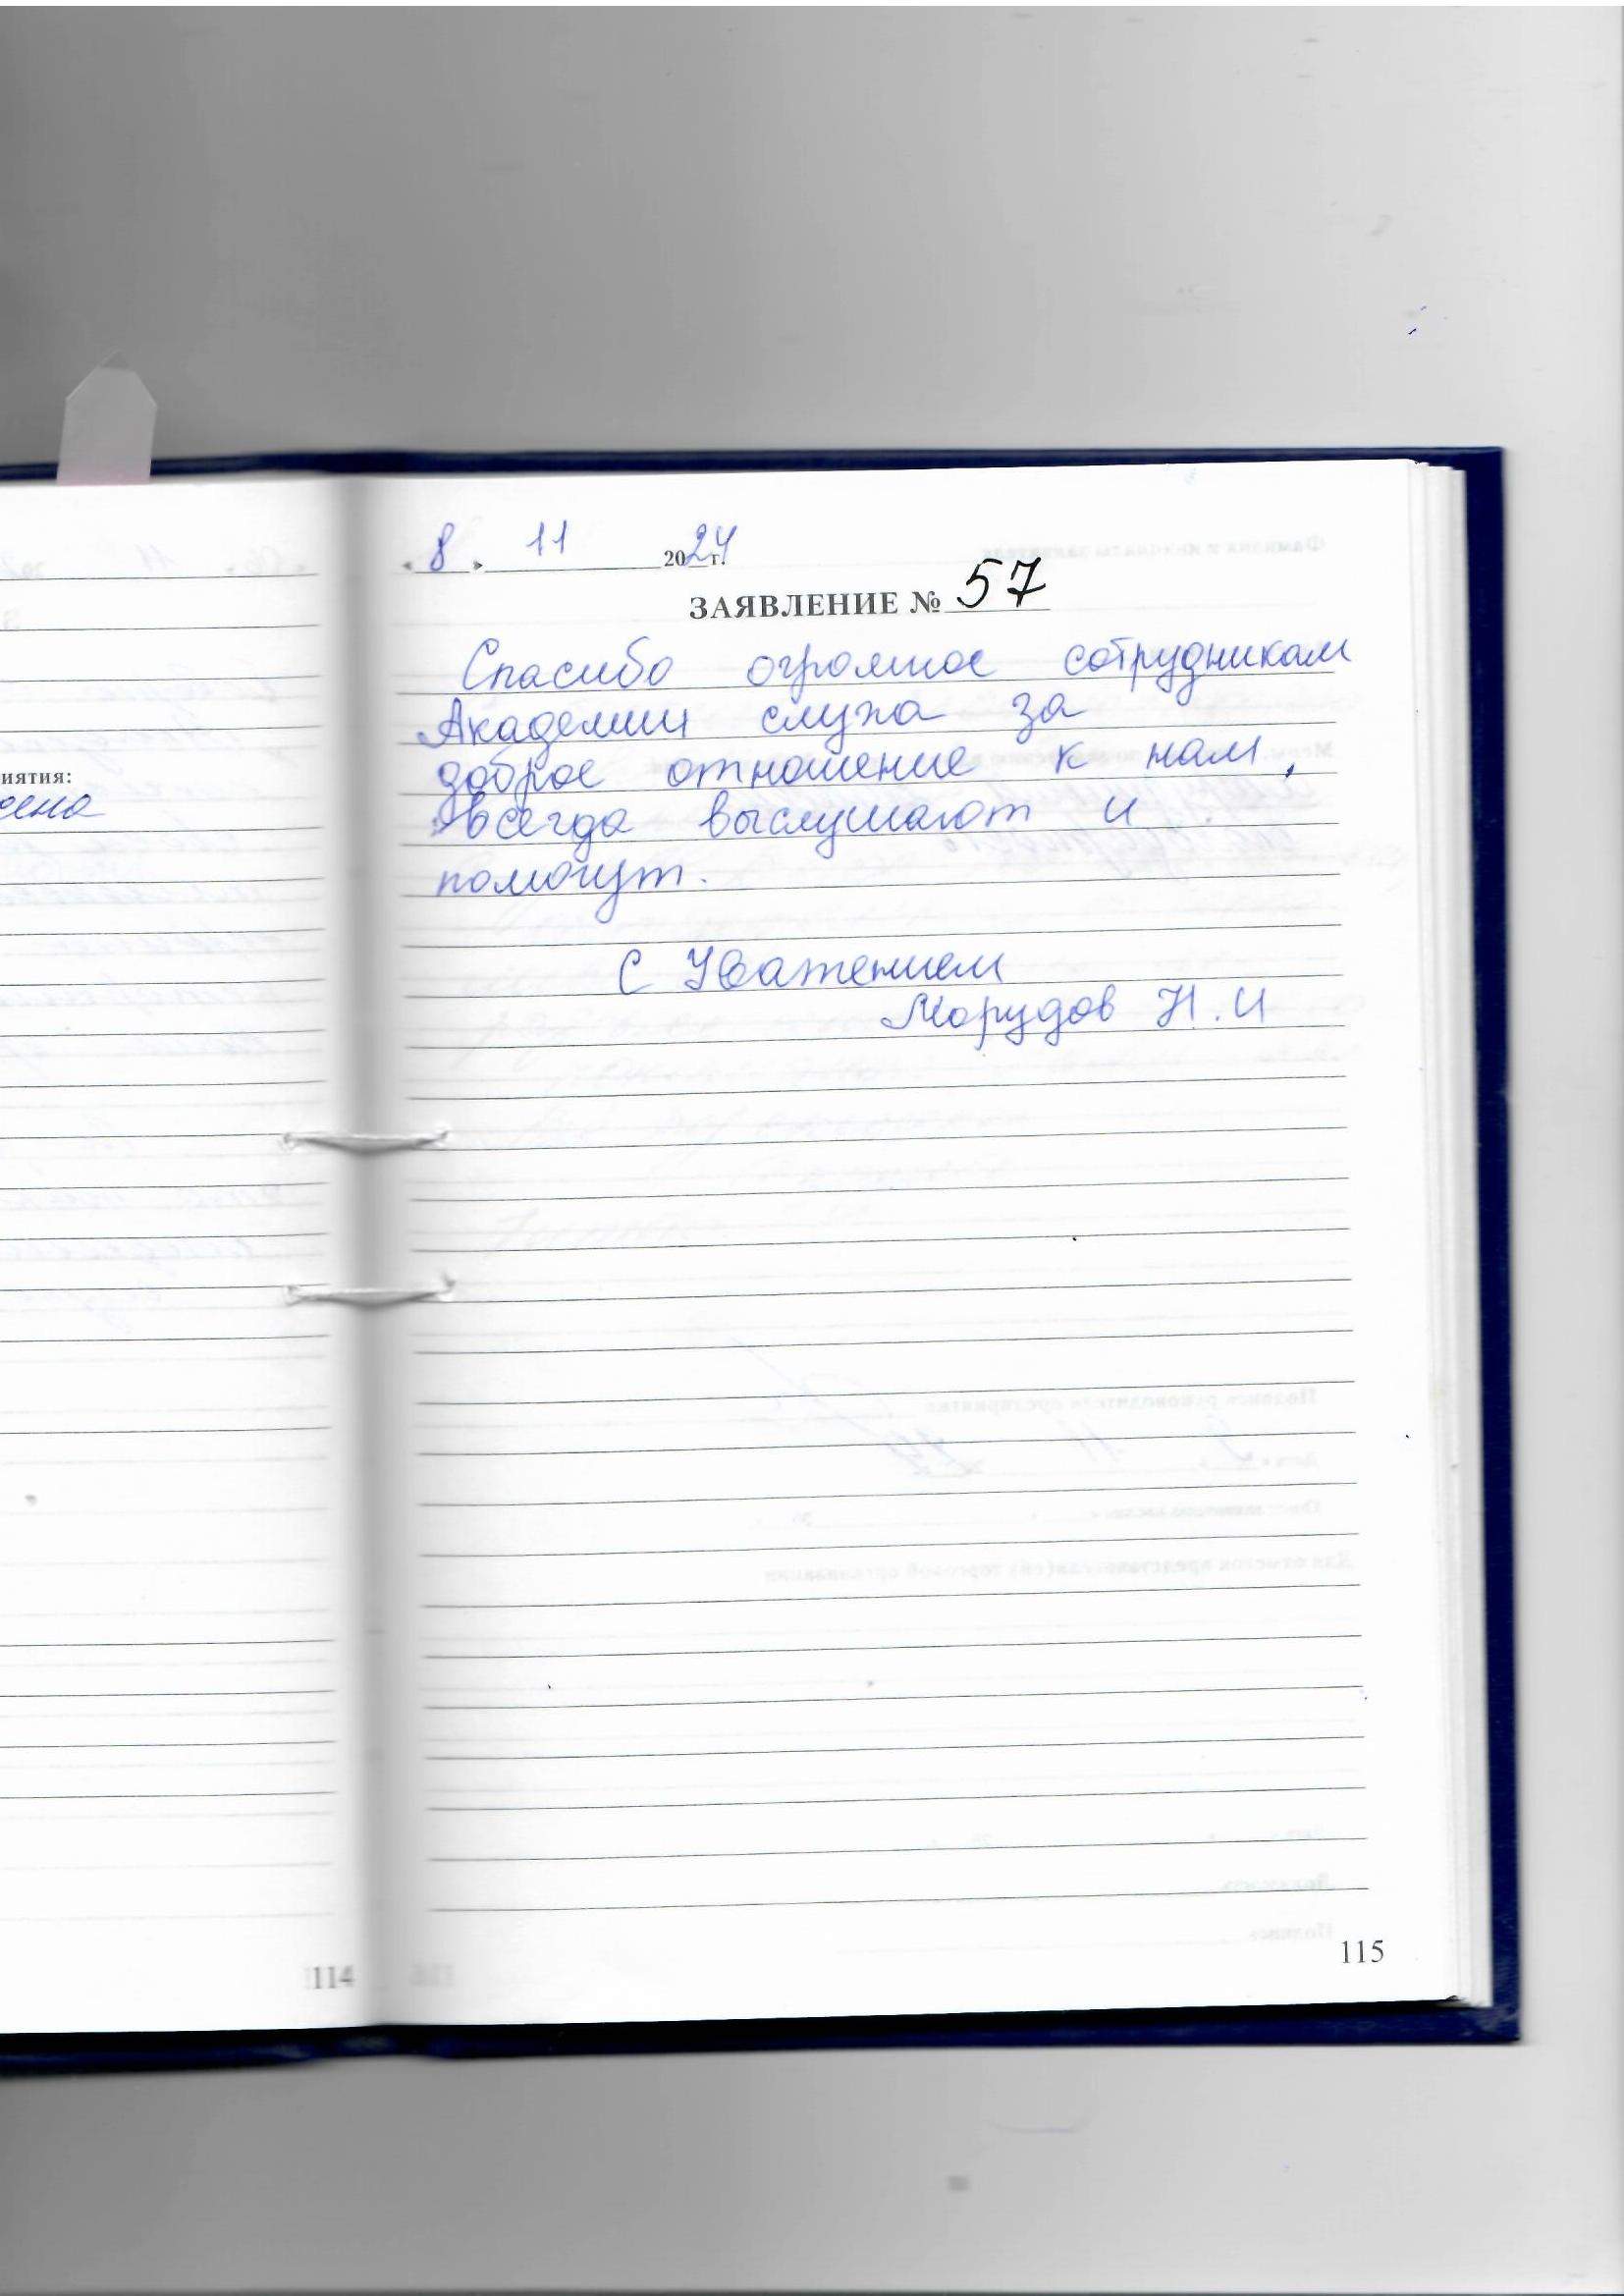 иятия:
ена
114
« 8 » 11 2024 г.
ЗАЯВЛЕНИЕ № 57
Спасибо огромное сотрудникам
Академии слуха за
доброе отношение к нам,
всегда выслушают и
помогут.
С Уважением
Морудов Н.И
115